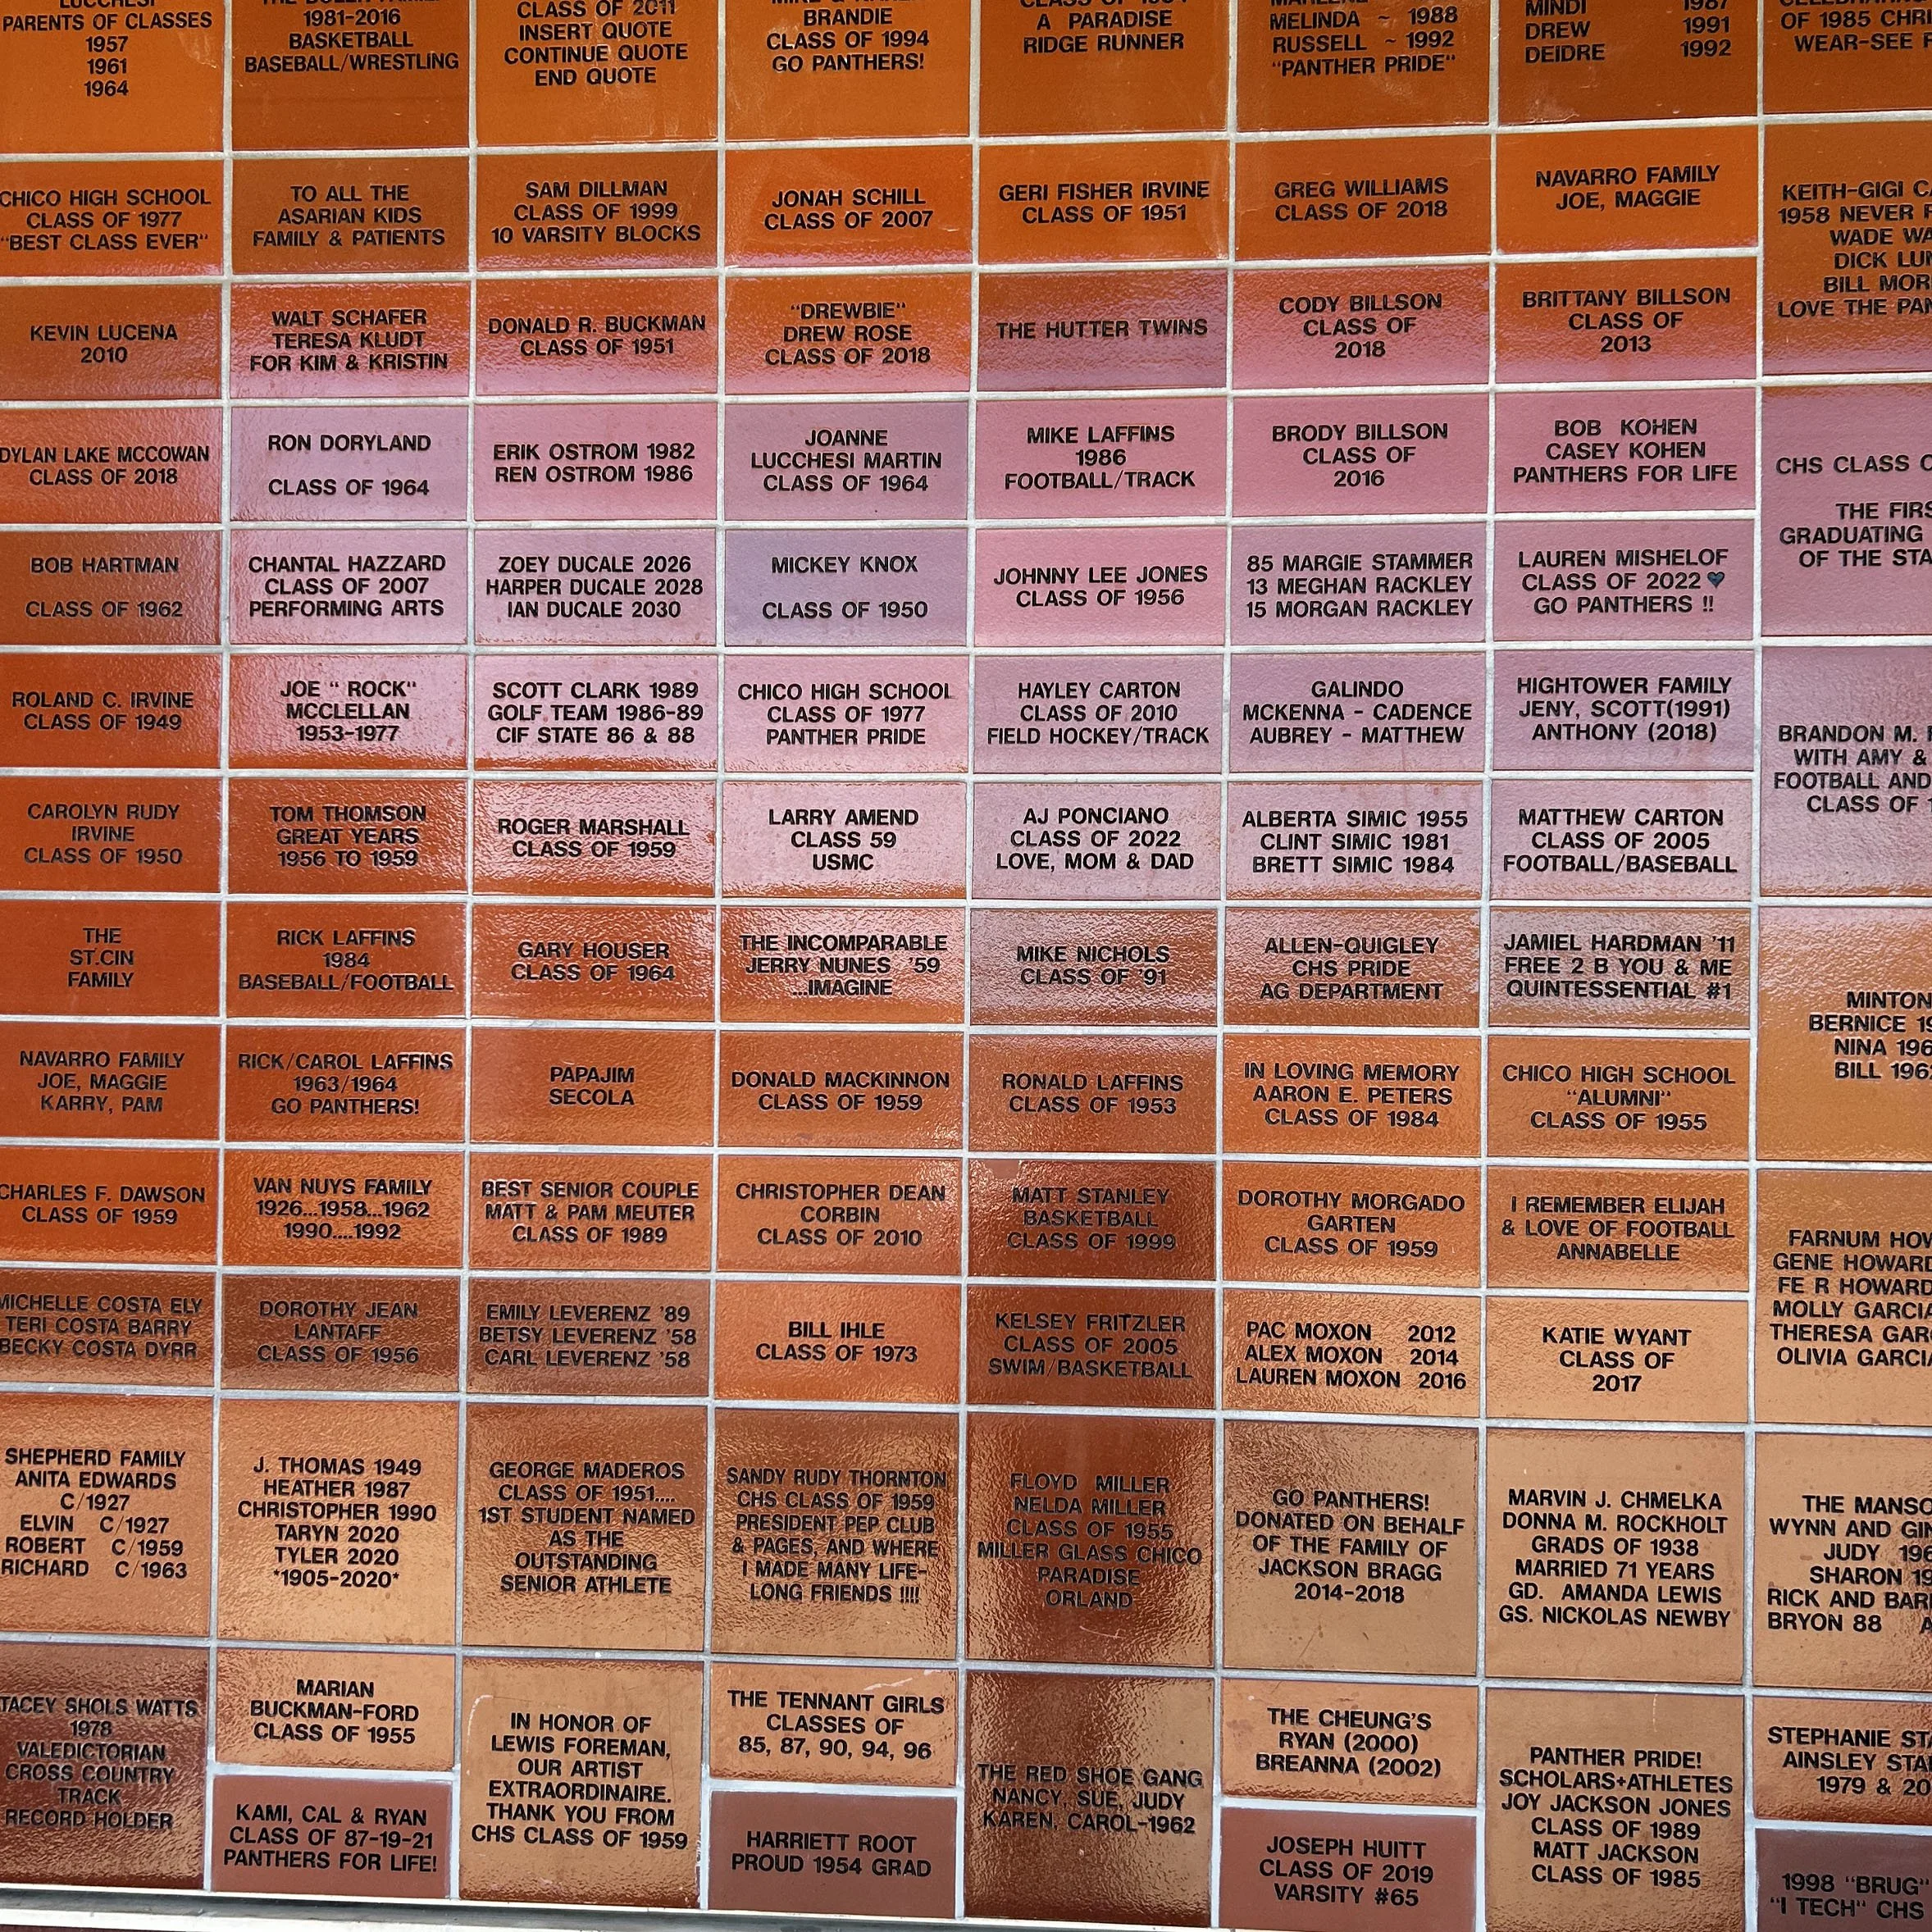 LUCCHESI
PARENTS OF CLASSES
1957
1961
1964
1981-2016
BASKETBALL
BASEBALL/WRESTLING
CLASS OF 2011
INSERT QUOTE
CONTINUE QUOTE
END QUOTE
BRANDIE
CLASS OF 1994
GO PANTHERS!
A PARADISE
RIDGE RUNNER
MELINDA ~ 1988
RUSSELL ~ 1992
"PANTHER PRIDE"
MINDI 1987
DREW 1991
DEIDRE 1992
OF 1985
WEAR-SEE
CHICO HIGH SCHOOL
CLASS OF 1977
"BEST CLASS EVER"
TO ALL THE
ASARIAN KIDS
FAMILY & PATIENTS
SAM DILLMAN
CLASS OF 1999
10 VARSITY BLOCKS
JONAH SCHILL
CLASS OF 2007
GERI FISHER IRVINE
CLASS OF 1951
GREG WILLIAMS
CLASS OF 2018
NAVARRO FAMILY
JOE, MAGGIE
KEITH-GIGI
1958 NEVER
WADE
DICK
BILL
LOVE THE
KEVIN LUCENA
2010
WALT SCHAFER
TERESA KLUDT
FOR KIM & KRISTIN
DONALD R. BUCKMAN
CLASS OF 1951
"DREWBIE"
DREW ROSE
CLASS OF 2018
THE HUTTER TWINS
CODY BILLSON
CLASS OF
2018
BRITTANY BILLSON
CLASS OF
2013
DYLAN LAKE MCCOWAN
CLASS OF 2018
RON DORYLAND
CLASS OF 1964
ERIK OSTROM 1982
REN OSTROM 1986
JOANNE
LUCCHESI MARTIN
CLASS OF 1964
MIKE LAFFINS
1986
FOOTBALL/TRACK
BRODY BILLSON
CLASS OF
2016
BOB KOHEN
CASEY KOHEN
PANTHERS FOR LIFE
CHS CLASS
THE
GRADUATING
OF THE
BOB HARTMAN
CLASS OF 1962
CHANTAL HAZZARD
CLASS OF 2007
PERFORMING ARTS
ZOEY DUCALE 2026
HARPER DUCALE 2028
IAN DUCALE 2030
MICKEY KNOX
CLASS OF 1950
JOHNNY LEE JONES
CLASS OF 1956
85 MARGIE STAMMER
13 MEGHAN RACKLEY
15 MORGAN RACKLEY
LAUREN MISHELOF
CLASS OF 2022 ♥
GO PANTHERS !!
ROLAND C. IRVINE
CLASS OF 1949
JOE " ROCK"
MCCLELLAN
1953-1977
SCOTT CLARK 1989
GOLF TEAM 1986-89
CIF STATE 86 & 88
CHICO HIGH SCHOOL
CLASS OF 1977
PANTHER PRIDE
HAYLEY CARTON
CLASS OF 2010
FIELD HOCKEY/TRACK
GALINDO
MCKENNA - CADENCE
AUBREY - MATTHEW
HIGHTOWER FAMILY
JENY, SCOTT(1991)
ANTHONY (2018)
BRANDON M.
WITH AMY &
FOOTBALL AND
CLASS OF
CAROLYN RUDY
IRVINE
CLASS OF 1950
TOM THOMSON
GREAT YEARS
1956 TO 1959
ROGER MARSHALL
CLASS OF 1959
LARRY AMEND
CLASS 59
USMC
AJ PONCIANO
CLASS OF 2022
LOVE, MOM & DAD
ALBERTA SIMIC 1955
CLINT SIMIC 1981
BRETT SIMIC 1984
MATTHEW CARTON
CLASS OF 2005
FOOTBALL/BASEBALL
THE
ST.CIN
FAMILY
RICK LAFFINS
1984
BASEBALL/FOOTBALL
GARY HOUSER
CLASS OF 1964
THE INCOMPARABLE
JERRY NUNES '59
...IMAGINE
MIKE NICHOLS
CLASS OF '91
ALLEN-QUIGLEY
CHS PRIDE
AG DEPARTMENT
JAMIEL HARDMAN '11
FREE 2 B YOU & ME
QUINTESSENTIAL #1
MINTON
BERNICE
NINA
BILL
NAVARRO FAMILY
JOE, MAGGIE
KARRY, PAM
RICK/CAROL LAFFINS
1963/1964
GO PANTHERS!
PAPAJIM
SECOLA
DONALD MACKINNON
CLASS OF 1959
RONALD LAFFINS
CLASS OF 1953
IN LOVING MEMORY
AARON E. PETERS
CLASS OF 1984
CHICO HIGH SCHOOL
"ALUMNI"
CLASS OF 1955
CHARLES F. DAWSON
CLASS OF 1959
VAN NUYS FAMILY
1926...1958...1962
1990....1992
BEST SENIOR COUPLE
MATT & PAM MEUTER
CLASS OF 1989
CHRISTOPHER DEAN
CORBIN
CLASS OF 2010
MATT STANLEY
BASKETBALL
CLASS OF 1999
DOROTHY MORGADO
GARTEN
CLASS OF 1959
I REMEMBER ELIJAH
& LOVE OF FOOTBALL
ANNABELLE
FARNUM
GENE HOWARD
FE R HOWARD
MOLLY GARCIA
THERESA
OLIVIA GARCIA
MICHELLE COSTA ELY
TERI COSTA BARRY
BECKY COSTA DYRR
DOROTHY JEAN
LANTAFF
CLASS OF 1956
EMILY LEVERENZ '89
BETSY LEVERENZ '58
CARL LEVERENZ '58
BILL IHLE
CLASS OF 1973
KELSEY FRITZLER
CLASS OF 2005
SWIM/BASKETBALL
PAC MOXON 2012
ALEX MOXON 2014
LAUREN MOXON 2016
KATIE WYANT
CLASS OF
2017
SHEPHERD FAMILY
ANITA EDWARDS
C/1927
ELVIN C/1927
ROBERT C/1959
RICHARD C/1963
J. THOMAS 1949
HEATHER 1987
CHRISTOPHER 1990
TARYN 2020
TYLER 2020
*1905-2020*
GEORGE MADEROS
CLASS OF 1951....
1ST STUDENT NAMED
AS THE
OUTSTANDING
SENIOR ATHLETE
SANDY RUDY THORNTON
CHS CLASS OF 1959
PRESIDENT PEP CLUB
& PAGES, AND WHERE
I MADE MANY LIFE-
LONG FRIENDS !!!!
FLOYD MILLER
NELDA MILLER
CLASS OF 1955
MILLER GLASS CHICO
PARADISE
ORLAND
GO PANTHERS!
DONATED ON BEHALF
OF THE FAMILY OF
JACKSON BRAGG
2014-2018
MARVIN J. CHMELKA
DONNA M. ROCKHOLT
GRADS OF 1938
MARRIED 71 YEARS
GD. AMANDA LEWIS
GS. NICKOLAS NEWBY
THE
WYNN AND
JUDY
SHARON
RICK AND
BRYON 88
STACEY SHOLS WATTS
1978
VALEDICTORIAN
CROSS COUNTRY
TRACK
RECORD HOLDER
MARIAN
BUCKMAN-FORD
CLASS OF 1955
KAMI, CAL & RYAN
CLASS OF 87-19-21
PANTHERS FOR LIFE!
IN HONOR OF
LEWIS FOREMAN,
OUR ARTIST
EXTRAORDINAIRE.
THANK YOU FROM
CHS CLASS OF 1959
THE TENNANT GIRLS
CLASSES OF
85, 87, 90, 94, 96
HARRIETT ROOT
PROUD 1954 GRAD
THE RED SHOE GANG
NANCY, SUE, JUDY
KAREN, CAROL-1962
THE CHEUNG'S
RYAN (2000)
BREANNA (2002)
JOSEPH HUITT
CLASS OF 2019
VARSITY #65
PANTHER PRIDE!
SCHOLARS+ATHLETES
JOY JACKSON JONES
CLASS OF 1989
MATT JACKSON
CLASS OF 1985
STEPHANIE
AINSLEY
1979 &
1998 "BRUG"
"I TECH" CHS